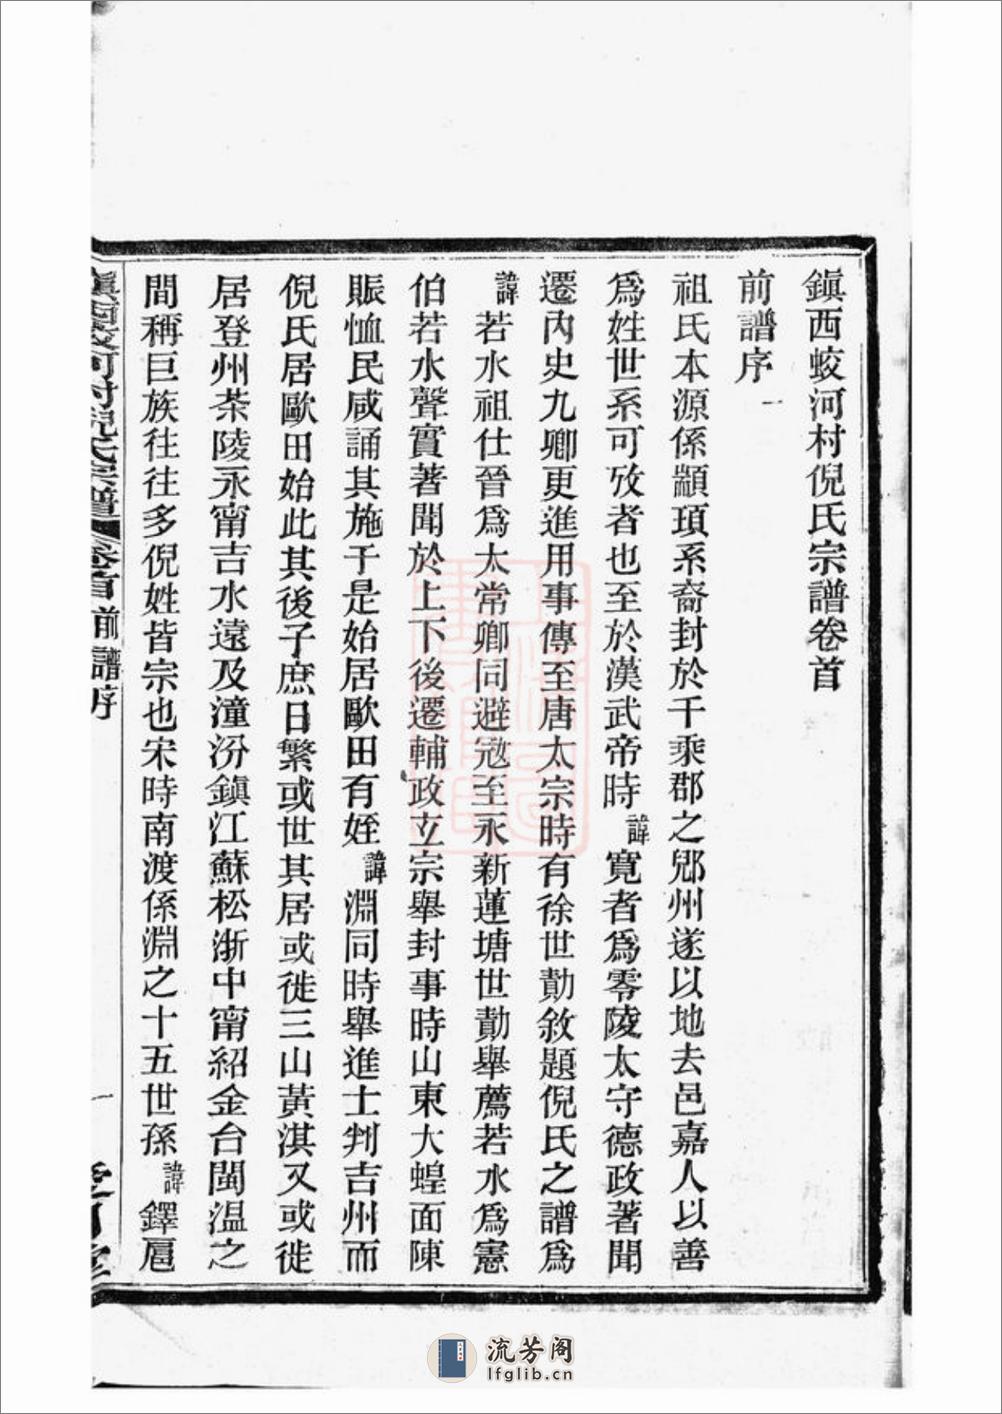 鎭西蛟河村倪氏宗譜卷首
前譜序一
祖氏本源係顓頊系裔封於千乘郡之郳州遂以地去邑嘉人以善
爲姓世系可攷者也至於漢武帝時諱寬者爲零陵太守德政著聞
遷內史九卿更進用事傳至唐太宗時有徐世勣敘題倪氏之譜爲
諱若水祖仕晉爲太常卿同避寇至永新蓮塘世勣舉薦若水爲憲
伯若水聲實著聞於上下後遷輔政立宗舉封事時山東大蝗面陳
賑恤民咸誦其施于是始居歐田有姪諱淵同時舉進士判吉州而
倪氏居歐田始此其後子庶日繁或世其居或徙三山黃淇又或徙
居登州茶陵永甯吉水遠及潼汾鎭江蘇松浙中甯紹金台閩温之
間稱巨族往往多倪姓皆宗也宋時南渡係淵之十五世孫諱鐸扈
鎭西蛟河村倪氏宗譜 卷首 前譜序 一
流芳阁
lfglib.cn